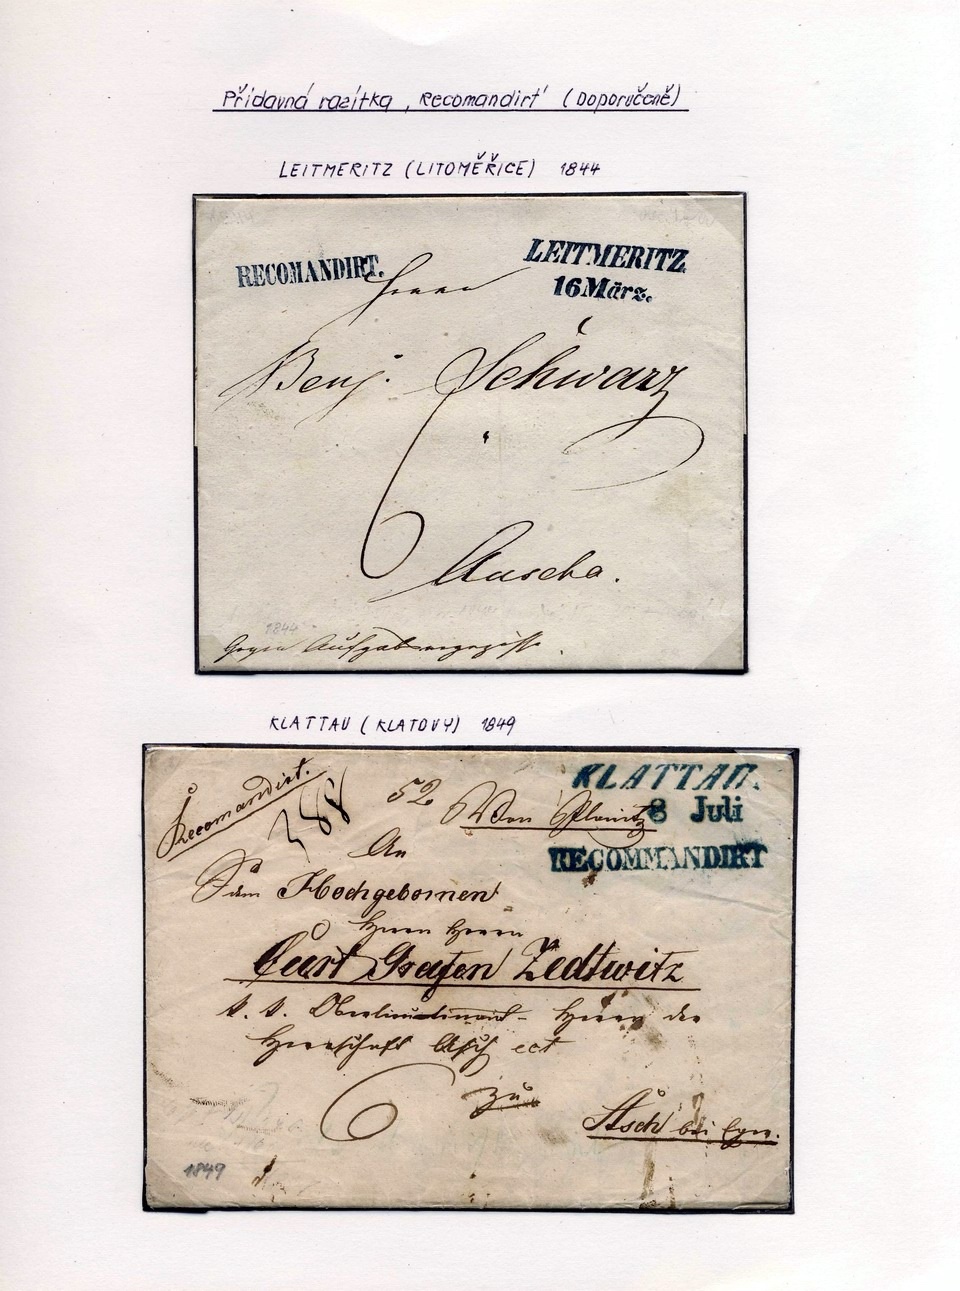 Přídavná razítka „Recomandirt“ (Doporučeně)
LEITMERITZ (LITOMĚŘICE) 1844
RECOMANDIRT.
LEITMERITZ
16 März.
Herrn
Benj. Schwarz
6
Auscha.
1844
Gegen Aufgabs
KLATTAU (KLATOVY) 1849
Recomandirt.
52
Von Planitz
KLATTAU.
8 Juli
RECOMMANDIRT
An
Hochgebornen
Herrn Herrn
Curt Grafen Zedtwitz
k. k. Oberlieutenant - Herrn der
Herrschaft Asch ect
6
zu
Asch bei Eger.
1849